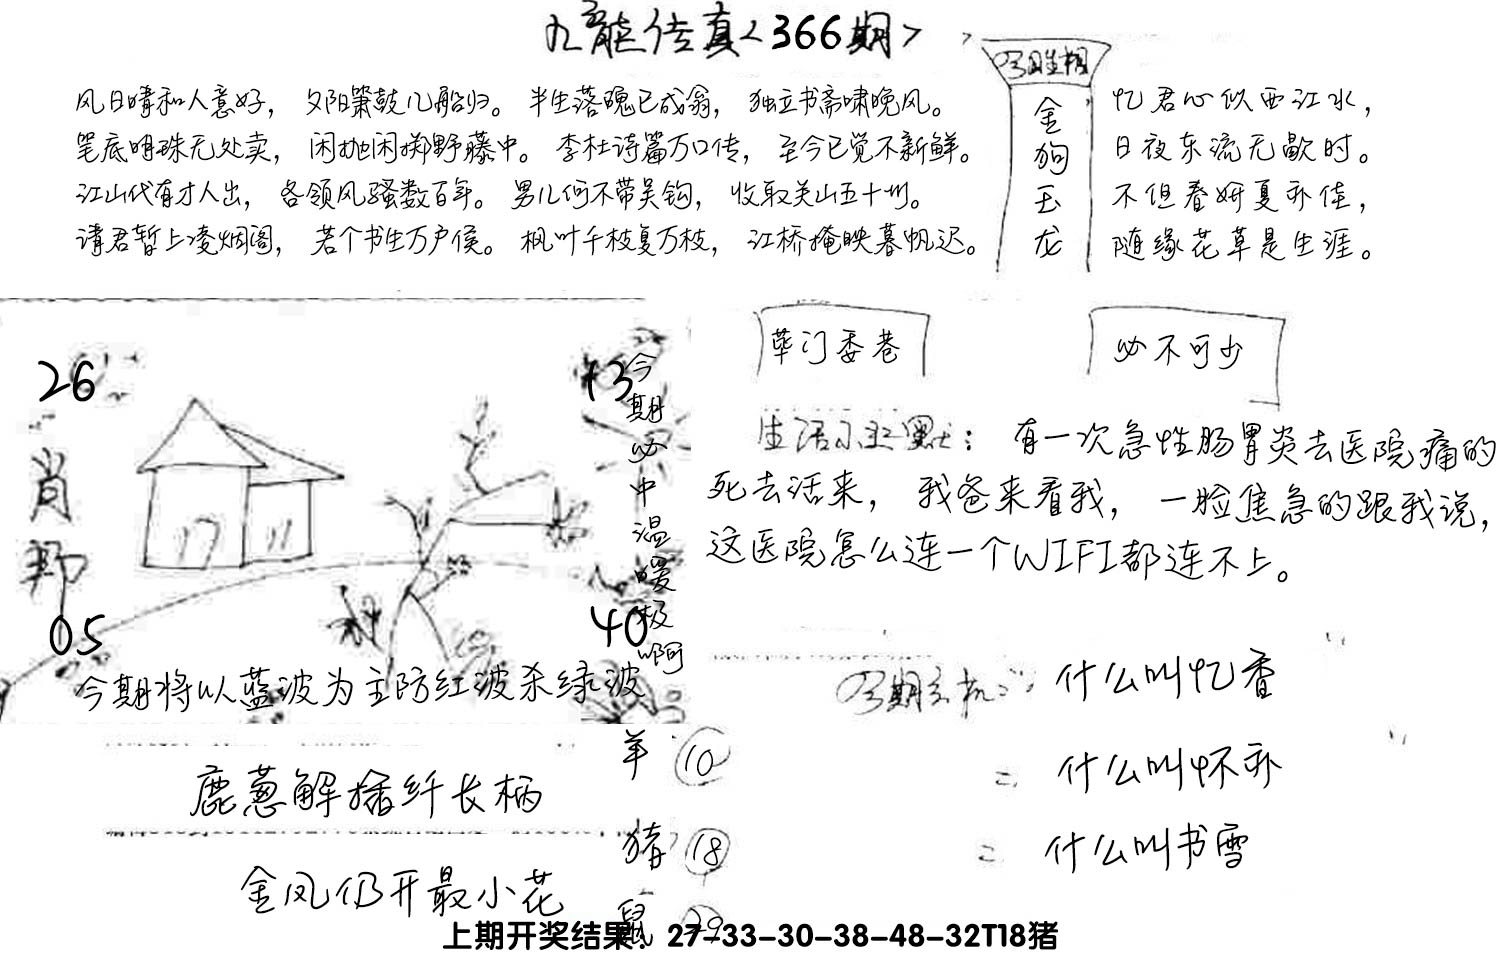 九龍传真<366期>
风日晴和人意好，夕阳箫鼓几船归。半生落魄已成翁，独立书斋啸晚风。
笔底明珠无处卖，闲抛闲掷野藤中。李杜诗篇万口传，至今已觉不新鲜。
江山代有才人出，各领风骚数百年。男儿何不带吴钩，收取关山五十州。
请君暂上凌烟阁，若个书生万户侯。枫叶千枝复万枝，江桥掩映暮帆迟。
金狗玉龙
忆君心似西江水，
日夜东流无歇时。
不但春妍夏亦佳，
随缘花草是生涯。
26
13
肖邦
05
40
今期必中温暖极啊
今期将以蓝波为主防红波杀绿波
荜门委巷
必不可少
生活小幽默：有一次急性肠胃炎去医院痛的
死去活来，我爸来看我，一脸焦急的跟我说，
这医院怎么连一个WIFI都连不上。
今期玄机：什么叫忆香
二 什么叫怀亦
二 什么叫书雪
羊 10
猪 18
鼠 29
鹿葱解插纤长柄
金凤仍开最小花
上期开奖结果：27-33-30-38-48-32T18猪